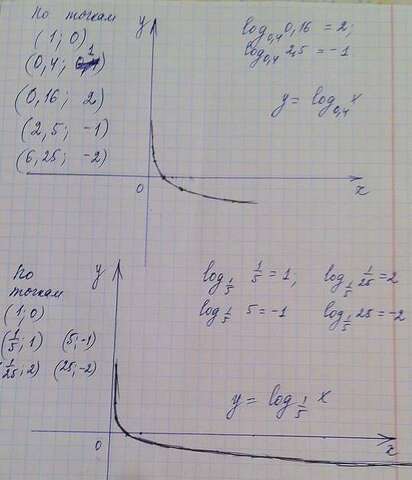 По точкам
(1; 0)
(0,4; 1)
(0,16; 2)
(2,5; -1)
(6,25; -2)
y
0
x
log₀,₄ 0,16 = 2;
log₀,₄ 2,5 = -1
y = log₀,₄ x
По точкам
(1; 0)
(1/5; 1) (5; -1)
(1/25; 2) (25; -2)
y
0
x
log₁/₅ 1/5 = 1; log₁/₅ 1/25 = 2
log₁/₅ 5 = -1 log₁/₅ 25 = -2
y = log₁/₅ x